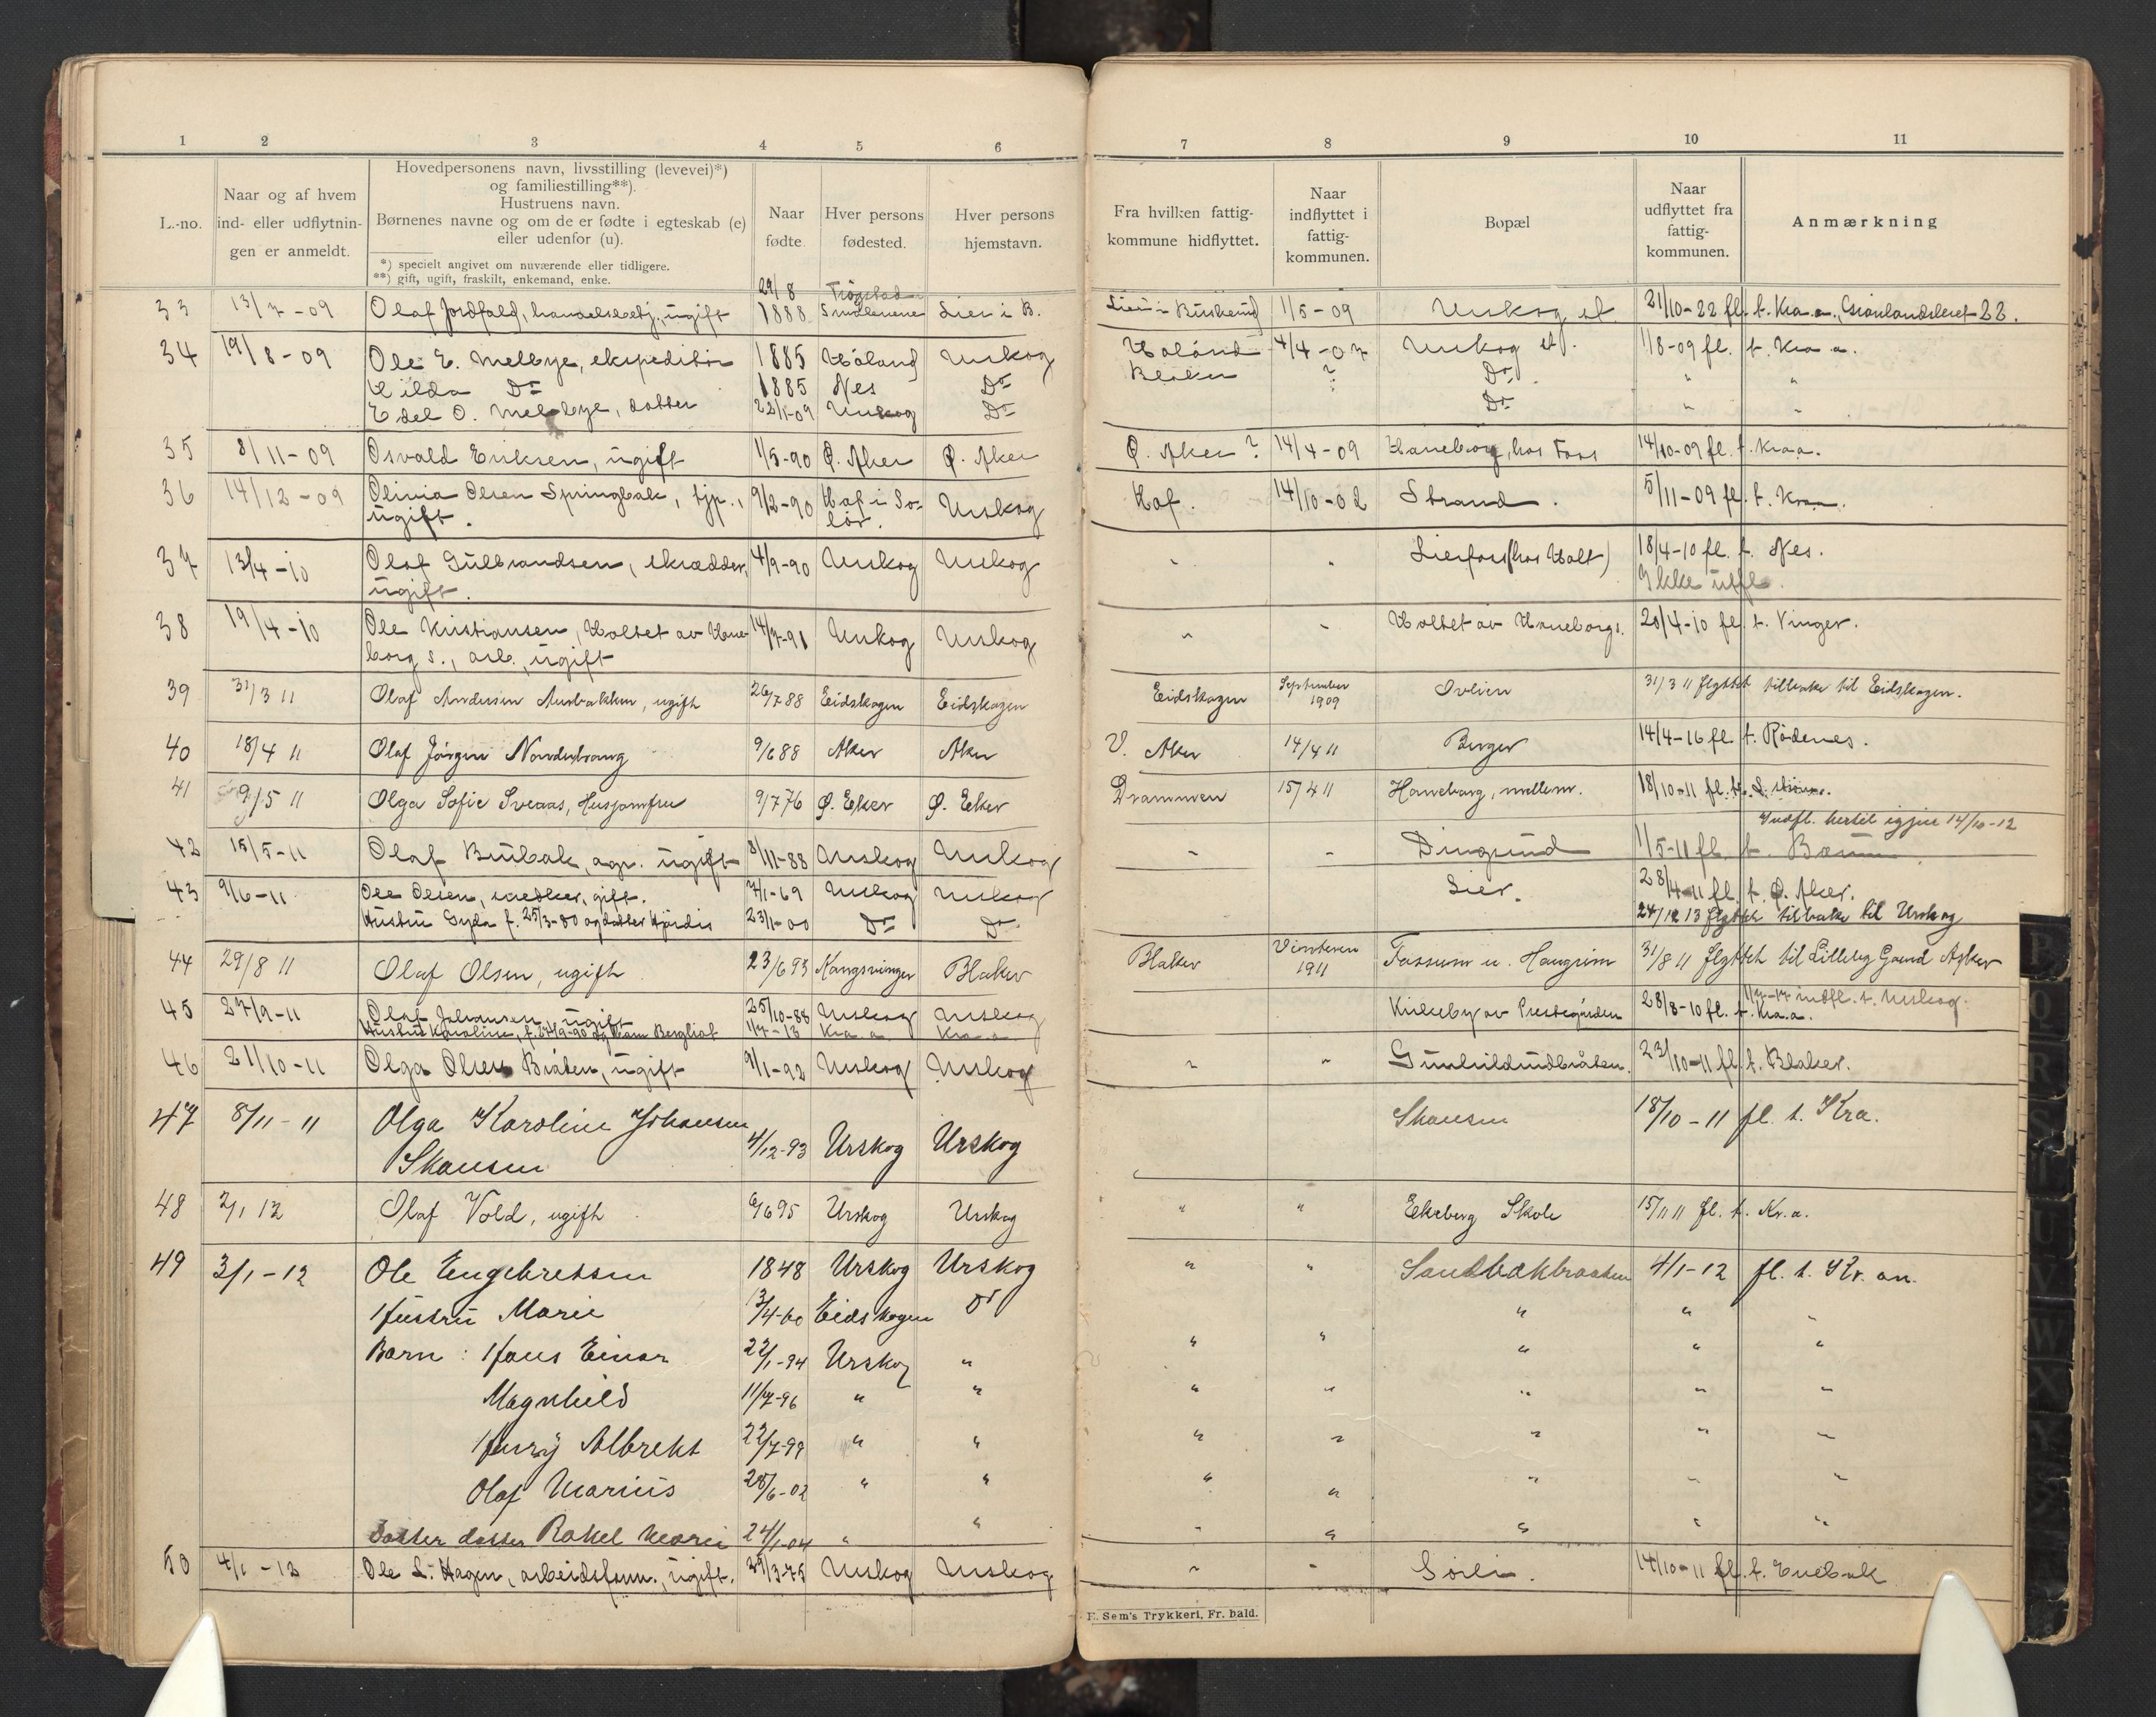 1 2 3 4 5 6 7 8 9 10 11
L.-no.
Naar og af hvem
ind- eller udflytnin-
gen er anmeldt.
Hovedpersonens navn, livsstilling (levevei)*)
og familiestilling**).
Hustruens navn.
Børnenes navne og om de er fødte i egteskab (e)
eller udenfor (u).
*) specielt angivet om nuværende eller tidligere.
**) gift, ugift, fraskilt, enkemand, enke.
Naar
fødte.
Hver persons
fødested.
Hver persons
hjemstavn.
Fra hvilken fattig-
kommune hidflyttet.
Naar
indflyttet i
fattig-
kommunen.
Bopæl
Naar
udflyttet fra
fattig-
kommunen.
Anmærkning
29/8 Trøgstad
33 13/7-09 Olaf Jordfald, handelsbetj., ugift 1888 Smålenene Lier i B. Lier i Buskerud 1/5-09 Urskog st. 21/10-22 fl. t. Kra.a., Grønlandsleret 22.
34 19/8-09 Ole E. Melbye, ekspeditør 1885 Høland Urskog Høland 4/4-07 Urskog st. 1/8-09 fl. t. Kra a.
Hilda Do 1885 Nes Do Blaker ? Do " "
Edel O. Melbye, datter 22/1-09 Urskog Do Do " "
35 8/11-09 Osvald Eriksen, ugift 1/5-90 Ø. Aker Ø. Aker Ø. Aker ? 14/4-09 Haneborg, hos Foss 14/10-09 fl. t. Kraa.
36 14/12-09 Olivia Olsen Springbak, tjp., 9/2-90 Hof i So- Urskog Hof. 14/10-02 Strand. 5/11-09 fl. t. Kraa.
ugift. lør.
37 13/4-10 Olaf Gulbrandsen, skrædder, 4/9-90 Urskog Urskog " " Lierfoss (hos Holt) 18/4-10 fl. t. Nes.
ugift. Ikke utfl.
38 19/4-10 Ole Kristiansen, Holtet av Hane- 14/7-91 Urskog Urskog " " Holtet av Haneborg s. 20/4-10 fl. t. Vinger.
borg s., arb., ugift
39 31/3 11 Olaf Andersen Aurbakken, ugift 26/7 88 Eidskogen Eidskogen Eidskogen September 1909 Ovlien 31/3 11 flyttet tilbake til Eidskogen.
40 18/4 11 Olaf Jörgen Nordstrang 9/6 88 Aker Aker V. Aker 14/4 11 Berger 14/4-16 fl. t. Rødenes.
41 9/5 11 Olga Sofie Sveaas, Husjomfru 9/7 76 Ø. Eker Ø. Eker Drammen 15/4 11 Haneborg, mellem. 18/10-11 fl.
Indfl. hertil igjen 14/10-12
42 15/5-11 Olaf Brubak, agr. ugift 8/11-88 Urskog Urskog " " Dingrund 1/5-11 fl. t. Bærum
43 9/6-11 Ole Olsen, snedker, gift. 7/1-69 Urskog Urskog Lier. 28/4-11 fl. t. Ø. Aker.
Hustru Gyda f. 25/3-80 og datter Hjørdis 23/1-00 Do Do 24/12 13 flyttet tilbake til Urskog
44 29/8 11 Olaf Olsen, ugift 23/6 93 Kongsvinger Blaker Blaker Vinteren 1911 Fossum u. Haugrim 31/8 11 flyttet til Lilleby Gaard Asker
45 27/9-11 Olaf Johansen, ugift 25/10-88 Urskog Urskog Kirkeby av Prestegården 28/8-10 fl. t. Kra.a. 1/7-17 indfl. t. Urskog.
Hustru Karoline, f. 27/9-90 og barn Bergliot 1/7-13 Kra.a. Kra.a.
46 21/10-11 Olga Olsen Bråten, ugift 9/1-92 Urskog Urskog " " Gunhildrudbråten. 23/10-11 fl. t. Blaker.
47 8/11-11 Olga Karoline Johansen 4/12-93 Urskog Urskog Skansen 18/10-11 fl. t. Kra.
Skansen
48 2/1 12 Olaf Vold, ugift 6/6 95 Urskog Urskog " " Eksberg Skole 15/11 11 fl. t. Kr.a.
49 3/1-12 Ole Engebretsen 1848 Urskog Urskog " " Sandbakbraaten 4/1-12 fl. t. Kr. an.
Hustru Marie 13/4-60 Eidskogen Do " " "
Barn: Hans Einar 22/1-94 Urskog " " " " " "
Magnhild 11/7-96 " " " " " " "
Harry Albrekt 22/7-99 " " " " " " "
Olaf Marius 28/6-02 " " " " " " "
Datter datter Rakel Marie 24/1-04 " " " " " " "
50 4/1-12 Ole L. Hagen, arbeidsform., ugift. 29/3-75 Urskog Urskog " " Sørli. 14/10-11 fl. t. Enebak
E. Sem's Trykkeri, Fr. hald.
P
Q
R
S
T
U
V
W
X
Y